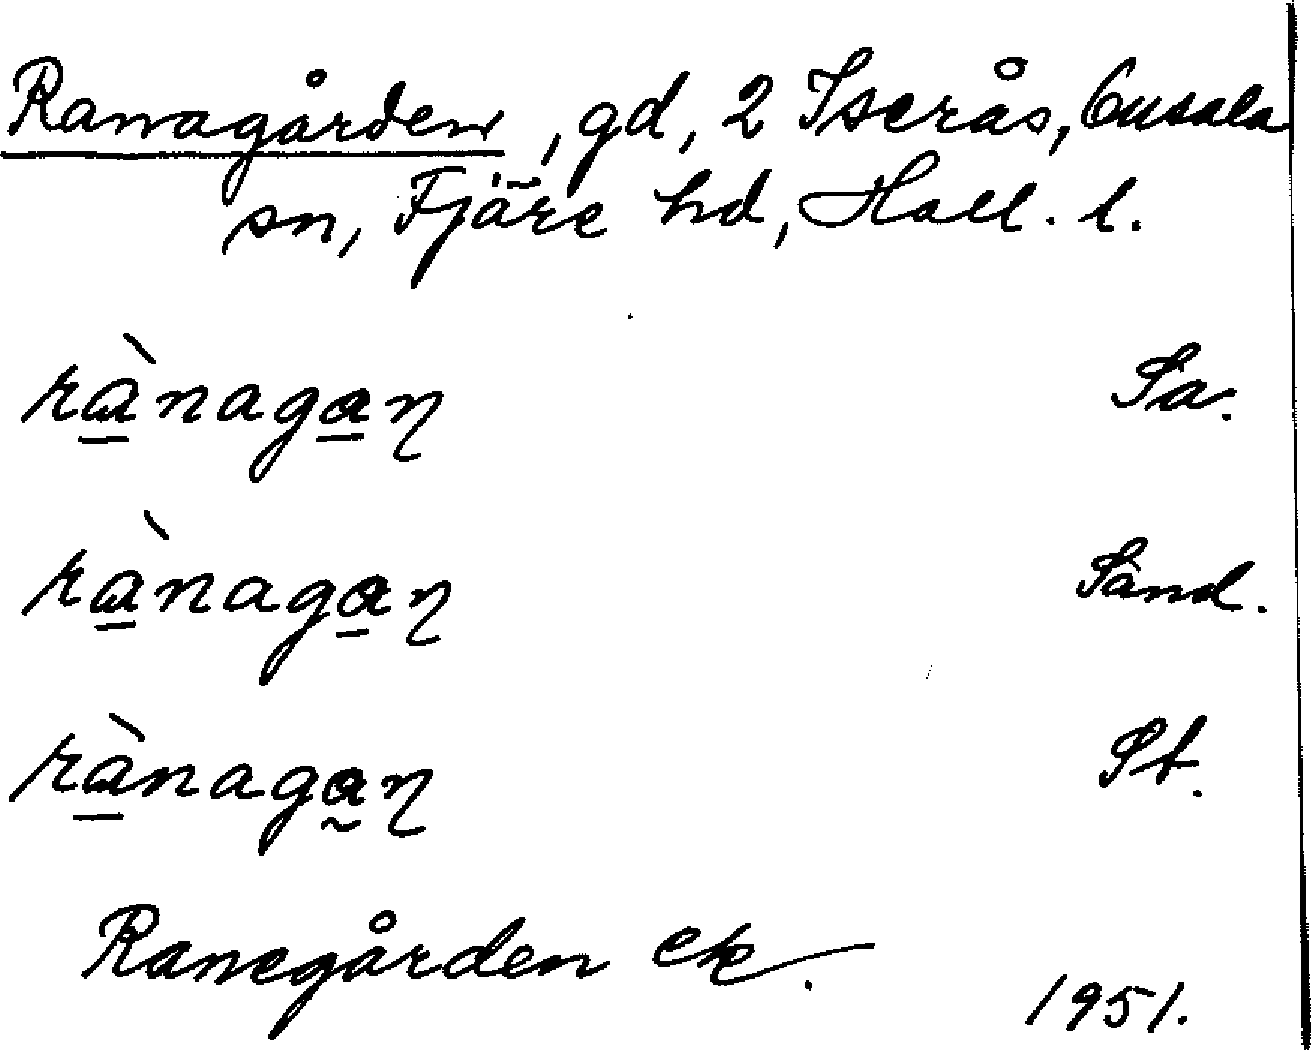 Ranagården, gd, 2 Iserås, Onsala
sn, Fjäre hd, Hall. l.
rànagaɳ Sa.
rànagaɳ Sand.
rànagaɳ St.
Ranegården ek.
1951.